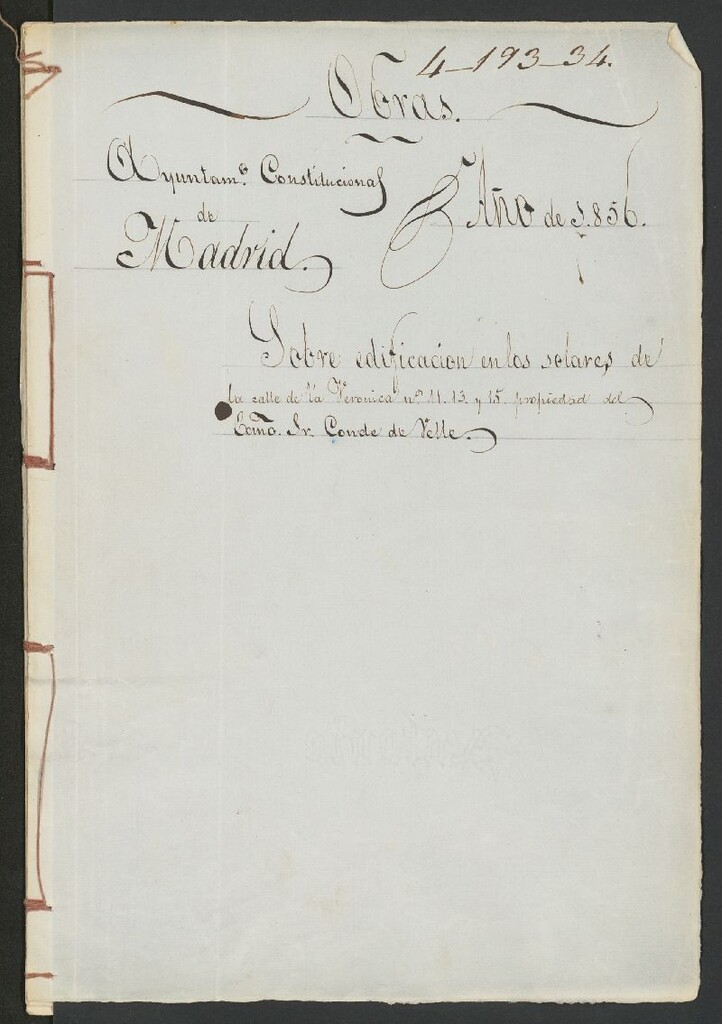 4-193-34.
Obras.
Ayuntam.º Constitucional
de
Madrid.
Año de 1.856.
Sobre edificacion en los solares de
la calle de la Veronica nº 11. 13. y 15. propiedad del
Ecmo. Sr. Conde de Velle.